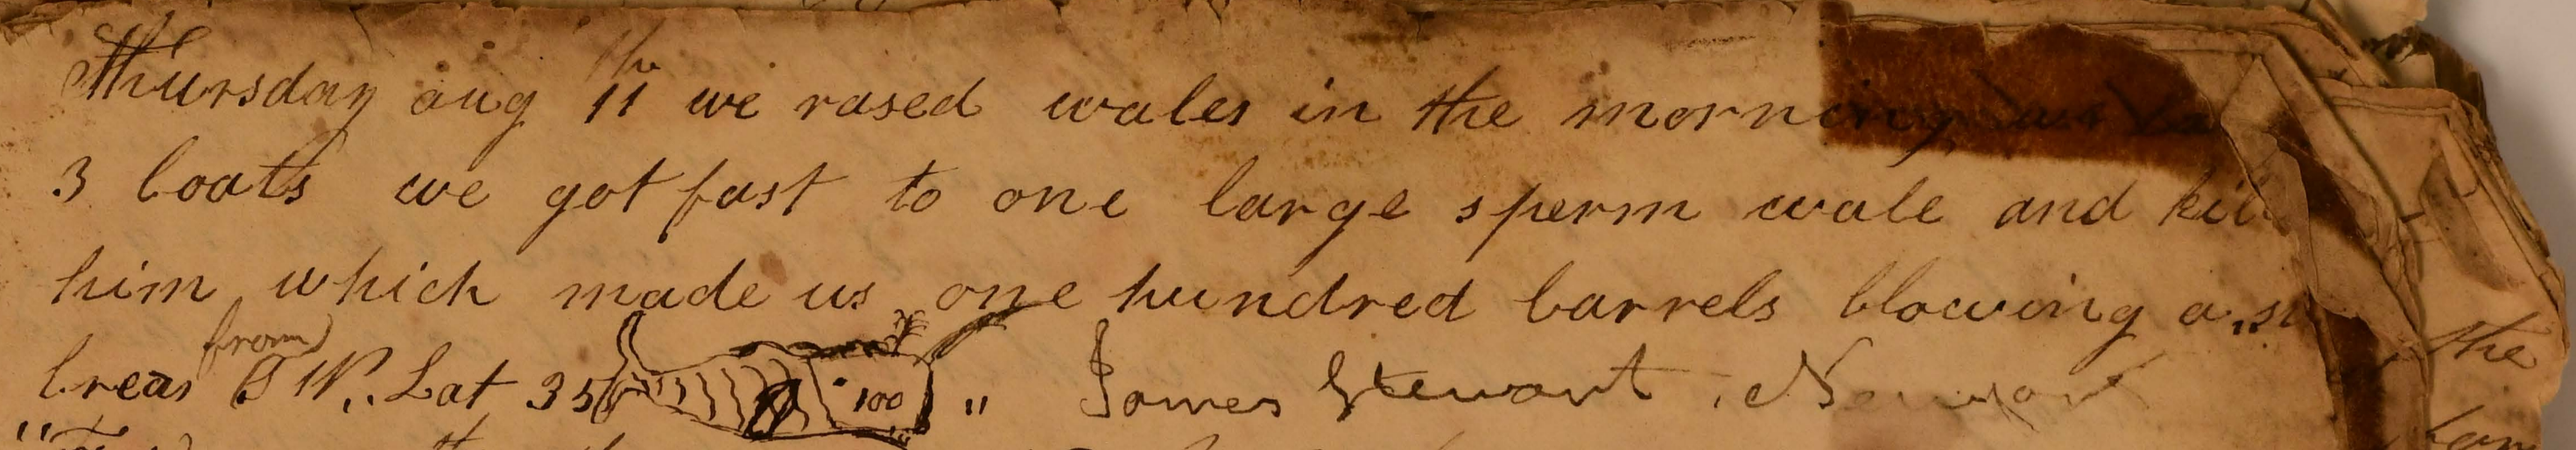 Thursday aug 11th we rased wales in the morning
3 boats we got fast to one large sperm wale and kill
him which made us one hundred barrels blowing a
breas from S W. Lat 35 100 " James Stewart
the